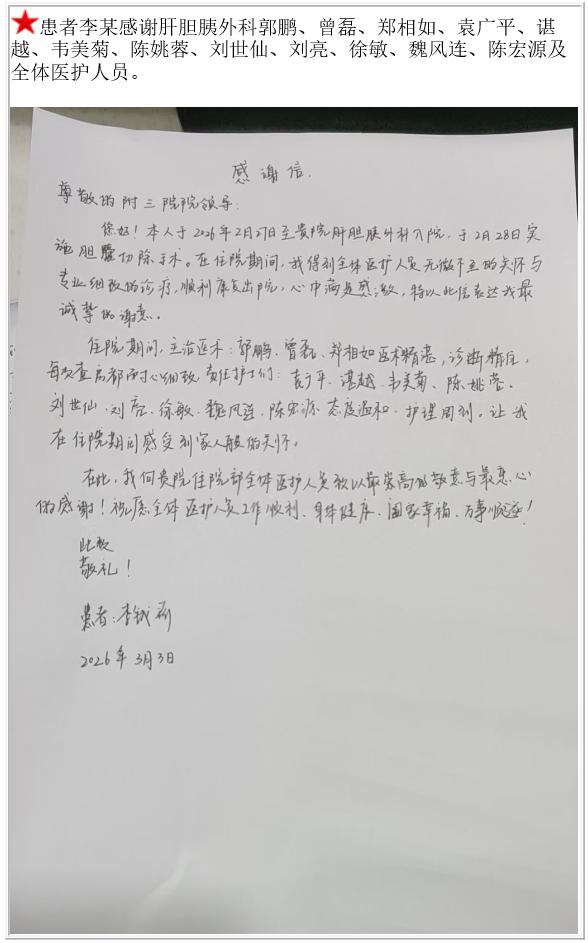 患者李某感谢肝胆胰外科郭鹏、曾磊、郑相如、袁广平、谌
越、韦美菊、陈姚蓉、刘世仙、刘亮、徐敏、魏风连、陈宏源及
全体医护人员。
感谢信.
尊敬的附三院院领导：
您好！本人于2026年2月27日至贵院肝胆胰外科入院，于2月28日实
施胆囊切除手术。在住院期间，我得到全体医护人员无微不至的关怀与
专业细致的诊疗，顺利康复出院，心中满是感激，特以此信表达我最
诚挚的谢意。
住院期间，主治医术：郭鹏、曾磊、郑相如医术精湛，诊断精准，
每次查房都耐心细致，责任护士们：袁广平、谌越、韦美菊、陈姚蓉、
刘世仙、刘亮、徐敏、魏风连、陈宏源 态度温和、护理周到。让我
在住院期间感受到家人般的关怀。
在此，我向贵院住院部全体医护人员致以最崇高的敬意与最衷心
的感谢！祝愿全体医护人员工作顺利、身体健康、阖家幸福、万事顺遂！
此致
敬礼！
患者：李
2026年3月3日